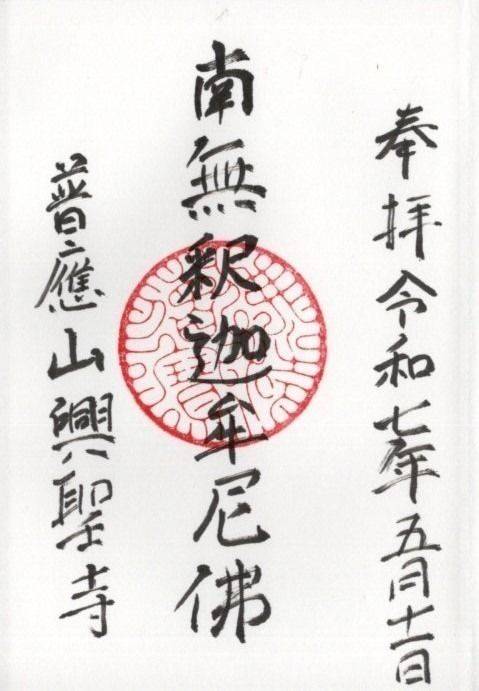 奉拝令和七年五月十一日
南無釈迦牟尼佛
普應山興聖寺